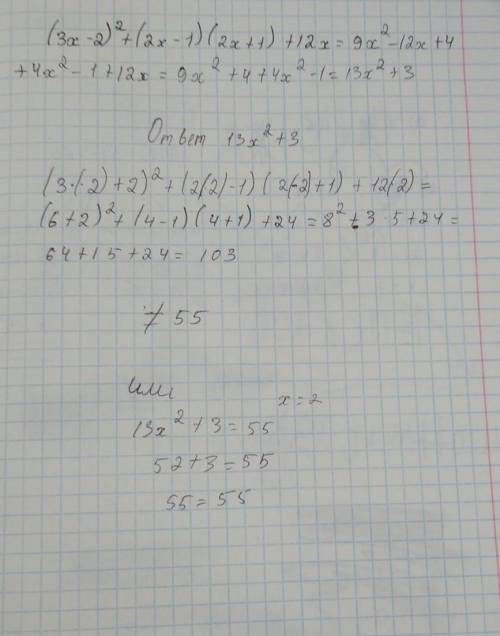 (3x-2)²+(2x-1)(2x+1)+12x=9x²-12x+4
+4x²-1+12x=9x²+4+4x²-1=13x²+3
Ответ 13x²+3
(3·(-2)+2)²+(2(2)-1)(2(-2)+1)+12(2)=
(6+2)²+(4-1)(4+1)+24=8²+3·5+24=
64+15+24=103
≠55
или x=2
13x²+3=55
52+3=55
55=55